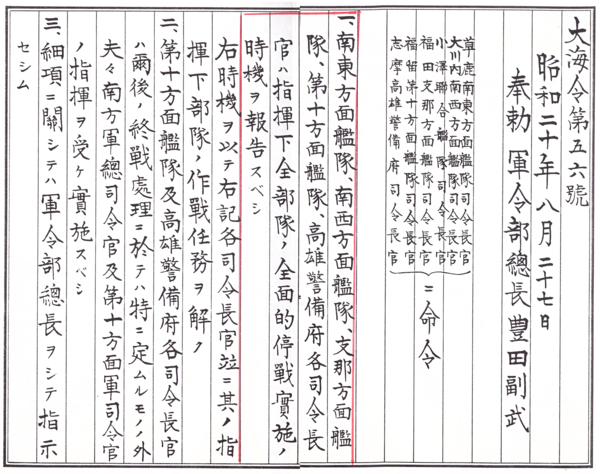 大海令第五六號
昭和二十年八月二十七日
奉勅 軍令部總長豊田副武
草鹿南東方面艦隊司令長官
大川内南西方面艦隊司令長官
小澤聯合艦隊司令長官
福田支那方面艦隊司令長官
福留第十方面艦隊司令長官
志摩高雄警備府司令長官
ニ命令
一、南東方面艦隊、南西方面艦隊、支那方面艦
隊、第十方面艦隊、高雄警備府各司令長
官ハ指揮下全部隊ノ全面的停戰實施ノ
時機ヲ報告スベシ
右時機ヲ以テ右記各司令長官竝ニ其ノ指
揮下部隊ノ作戰任務ヲ解ク
二、第十方面艦隊及高雄警備府各司令長官
ハ爾後ノ終戰處理ニ於テハ特ニ定ムルモノノ外
夫々南方軍總司令官及第十方面軍司令官
ノ指揮ヲ受ケ實施スベシ
三、細項ニ關シテハ軍令部總長ヲシテ指示
セシム